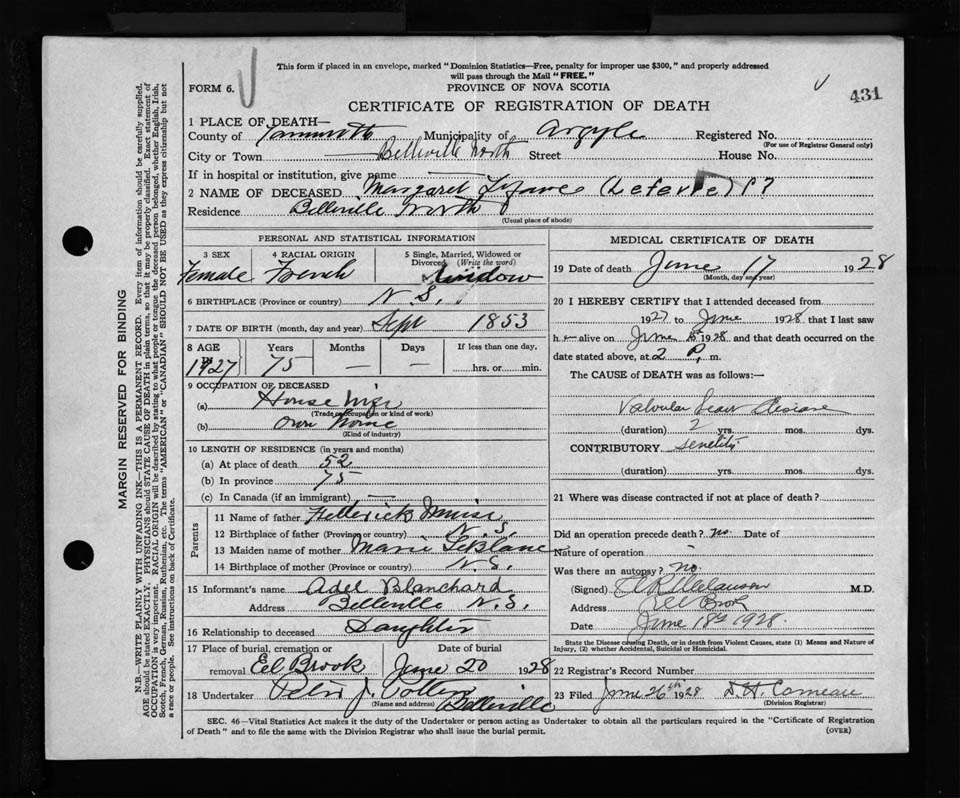 This form if placed in an envelope, marked "Dominion Statistics—Free, penalty for improper use $300," and properly addressed
will pass through the Mail "FREE."
FORM 6.
PROVINCE OF NOVA SCOTIA
431
CERTIFICATE OF REGISTRATION OF DEATH
1 PLACE OF DEATH—
County of Yarmouth Municipality of Argyle Registered No.
(For use of Registrar General only)
City or Town Belleville North Street House No.
If in hospital or institution, give name —
2 NAME OF DECEASED Margaret
Residence Belleville North
(Usual place of abode)
PERSONAL AND STATISTICAL INFORMATION
3 SEX 4 RACIAL ORIGIN 5 Single, Married, Widowed or
Divorced (Write the word)
Female French Widow
6 BIRTHPLACE (Province or country) N.S.
7 DATE OF BIRTH (month, day and year) Sept 1853
8 AGE Years Months Days If less than one day,
75 — — hrs. or min.
9 OCCUPATION OF DECEASED
(a) House
(Trade, occupation or kind of work)
(b) Own home
(Kind of industry)
10 LENGTH OF RESIDENCE (in years and months)
(a) At place of death 52
(b) In province 75
(c) In Canada (if an immigrant) —
Parents
11 Name of father Muise
12 Birthplace of father (Province or country) N.S.
13 Maiden name of mother Marie LeBlanc
14 Birthplace of mother (Province or country) N.S.
15 Informant's name Adel Blanchard
Address Belleville N.S.
16 Relationship to deceased Daughter
17 Place of burial, cremation or Date of burial
removal Eel Brook June 20 1928
18 Undertaker Peter J. Pottier
(Name and address) Belleville
MEDICAL CERTIFICATE OF DEATH
19 Date of death June 17 1928
(Month, day and year)
20 I HEREBY CERTIFY that I attended deceased from
1927 to June 1928 that I last saw
h alive on June 1928 and that death occurred on the
date stated above, at 2 P. m.
The CAUSE of DEATH was as follows:—
Valvular Heart Disease
(duration) 2 yrs. mos. dys.
CONTRIBUTORY Senelity
(duration) yrs. mos. dys.
21 Where was disease contracted if not at place of death?
Did an operation precede death? no Date of
Nature of operation
Was there an autopsy? no.
(Signed) M.D.
Address Eel Brook
Date June 18th 1928.
State the Disease causing Death, or in death from Violent Causes, state (1) Means and Nature of
Injury, (2) whether Accidental, Suicidal or Homicidal.
22 Registrar's Record Number
23 Filed June 26th 1928 D.H. Comeau
(Division Registrar)
SEC. 46—Vital Statistics Act makes it the duty of the Undertaker or person acting as Undertaker to obtain all the particulars required in the "Certificate of Registration
of Death" and to file the same with the Division Registrar who shall issue the burial permit.
(OVER)
MARGIN RESERVED FOR BINDING
N.B.—WRITE PLAINLY WITH UNFADING INK—THIS IS A PERMANENT RECORD. Every item of information should be carefully supplied.
AGE should be stated EXACTLY. PHYSICIANS should STATE CAUSE OF DEATH in plain terms, so that it may be properly classified. Exact statement of
OCCUPATION is very important. RACIAL ORIGIN will be described by stating to what people or tongue the deceased person belonged, whether English, Irish,
Scotch, French, German, Russian, Ruthenian, etc. The terms "AMERICAN" or "CANADIAN" SHOULD NOT BE USED as they express citizenship but not
a race or people. See instructions on back of Certificate.